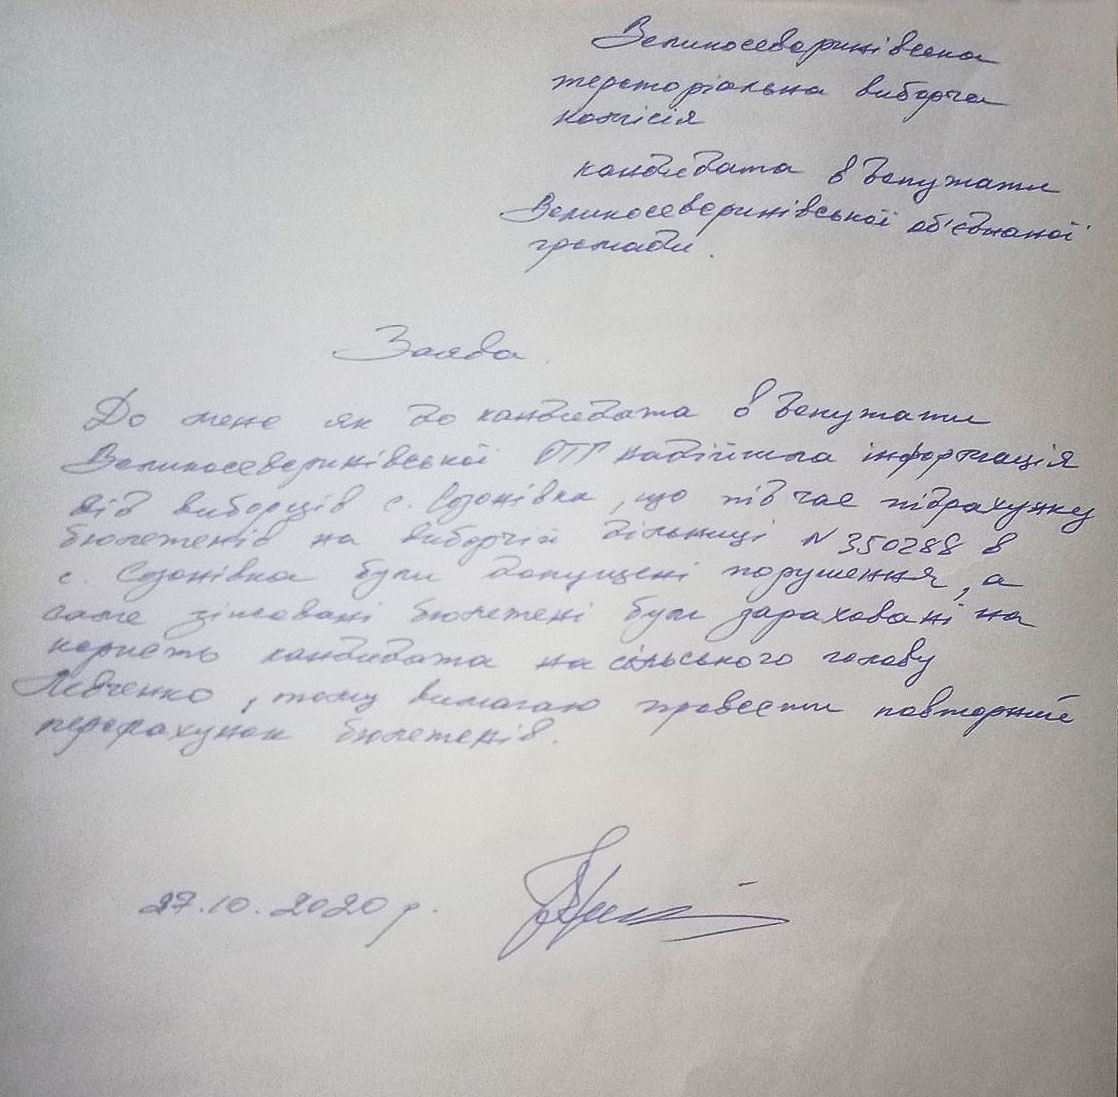 Великосеверинівська
територіальна виборча
комісія
кандидата в депутати
Великосеверинівської об'єднаної
громади.
Заява
До мене як до кандидата в депутати
Великосеверинівської ОТГ надійшла інформація
від виборців с. Созонівка, що під час підрахунку
бюлетенів на виборчій дільниці N 350288 в
с Созонівка були допущені порушення, а
саме зіпсовані бюлетені були зараховані на
користь кандидата на сільського голову
Левченко, тому вимагаю провести повторний
перерахунок бюлетенів.
27.10.2020 р.